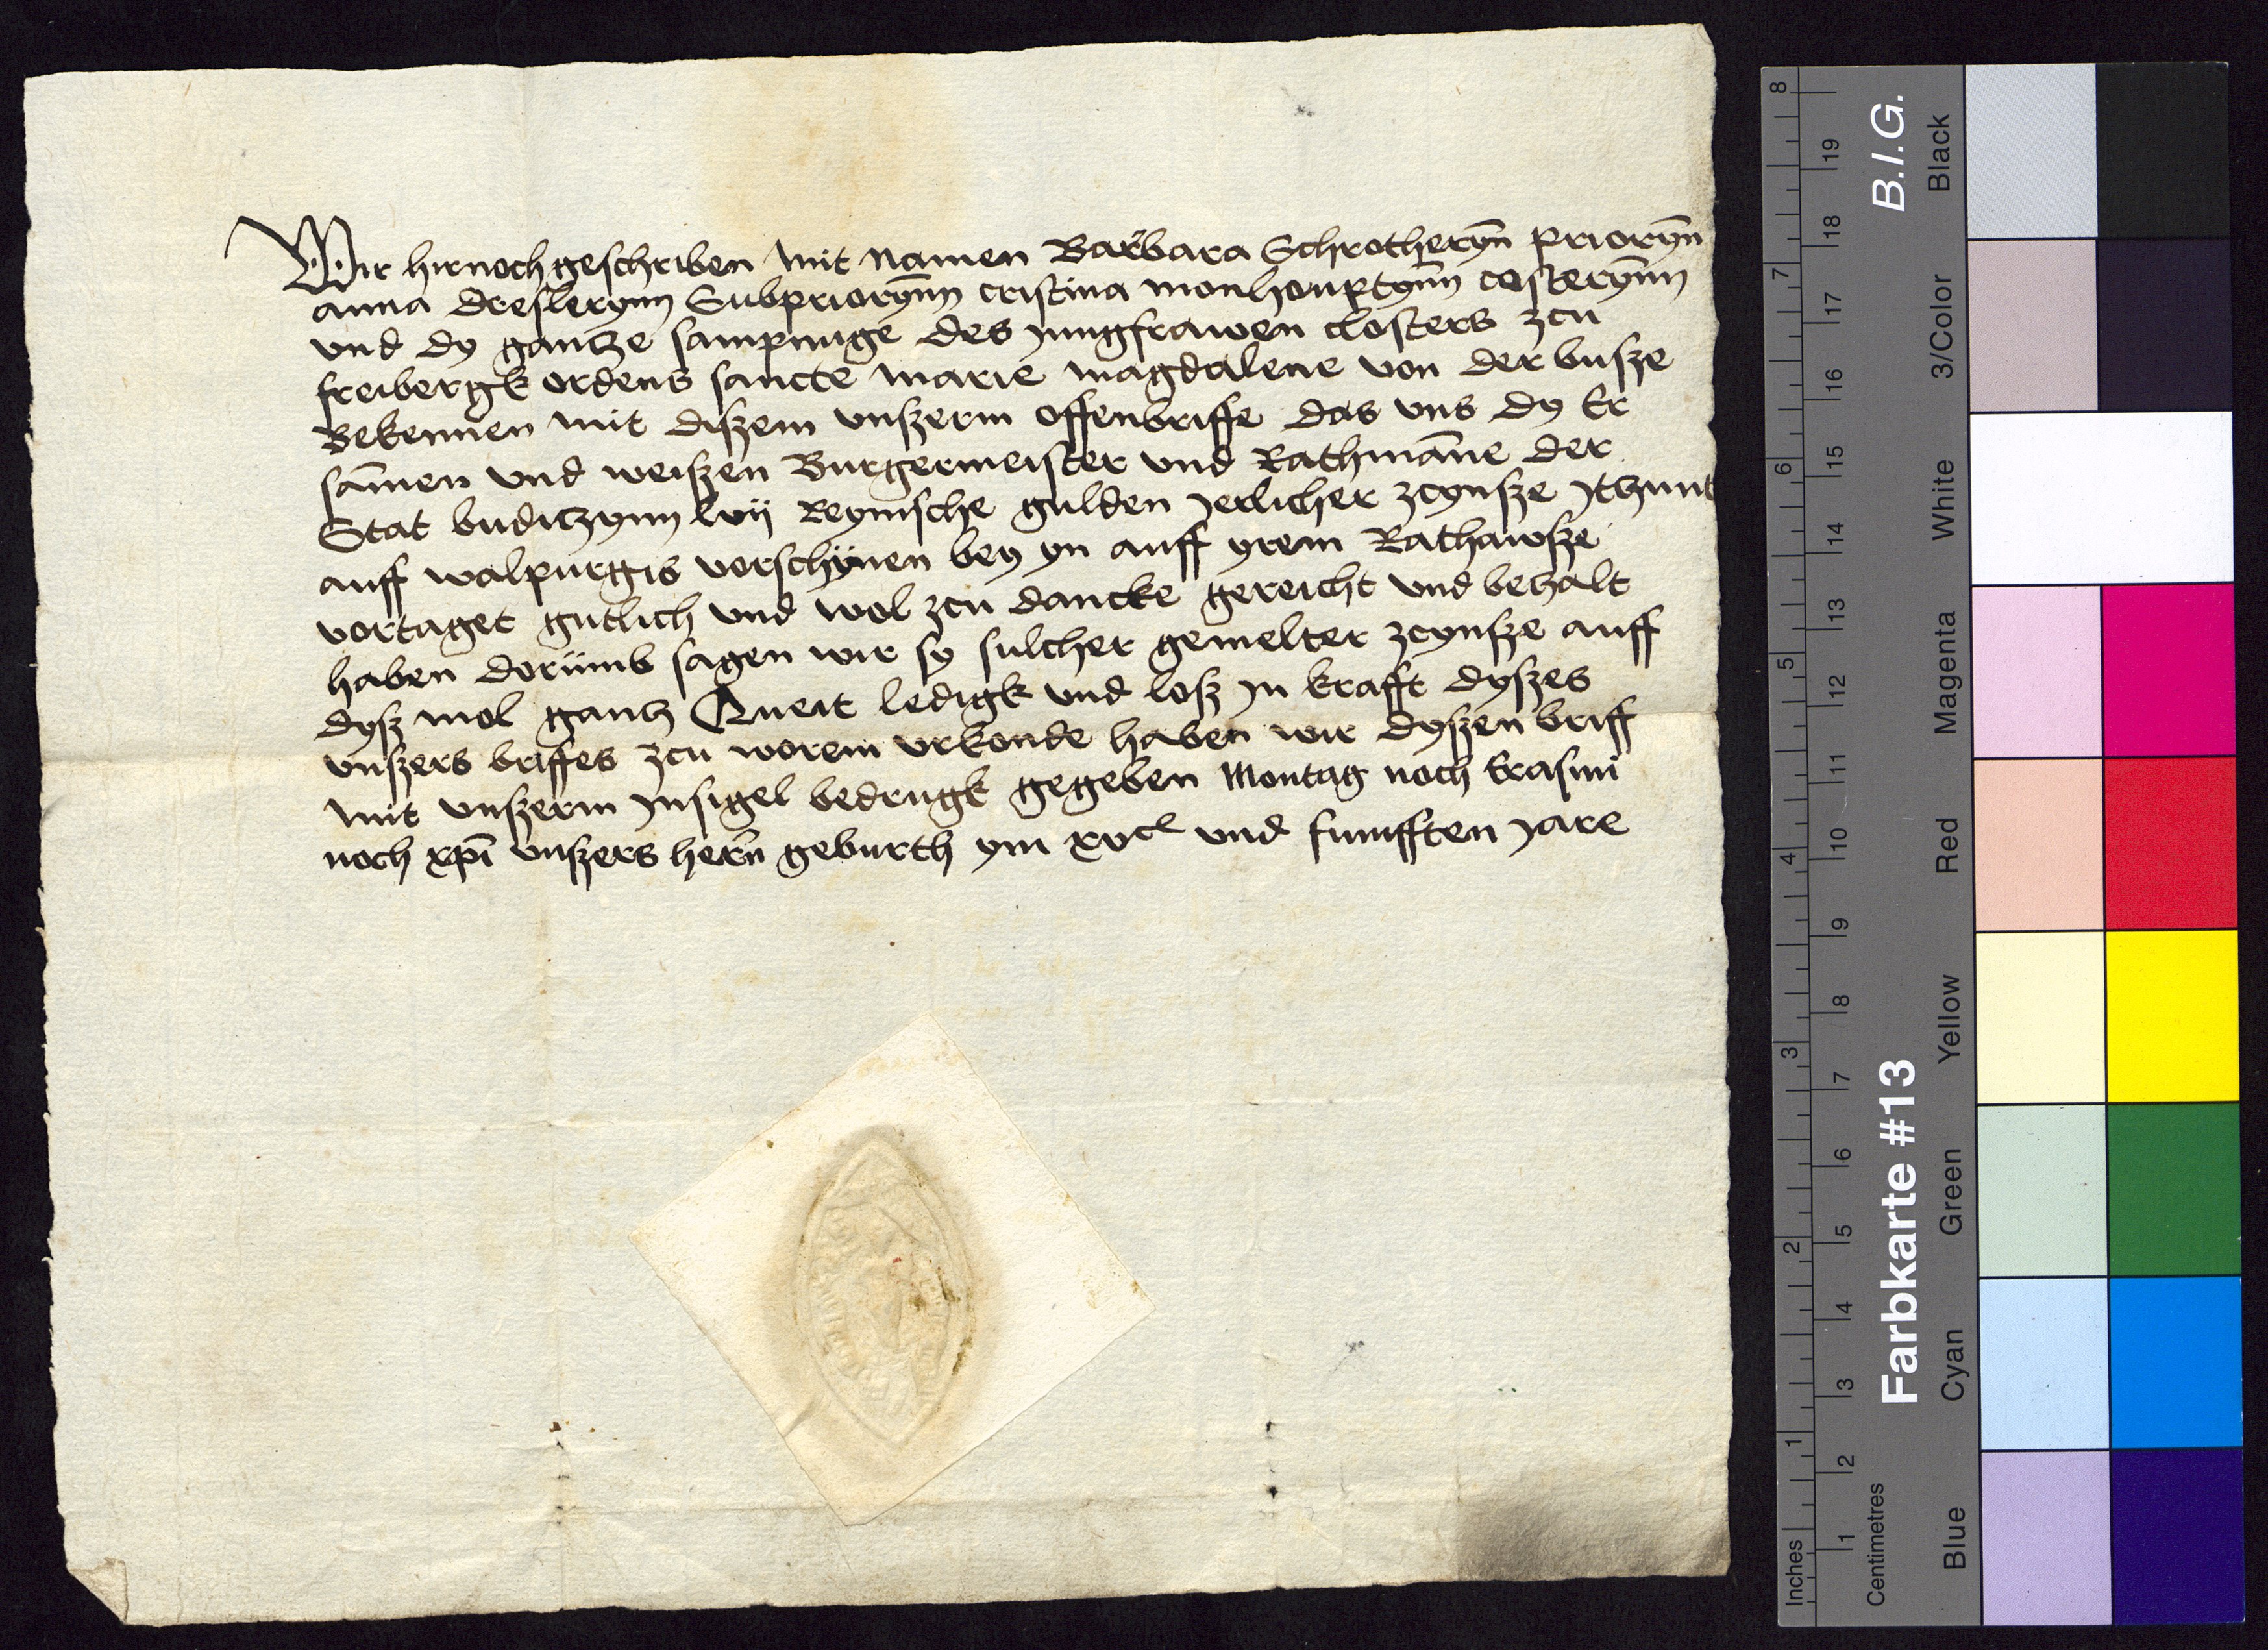 Wir hirnoch geschriben mit namen Barbara Schrotheryn̄ prioryn̄
anna dreslerynn Subprioryn̄n cristina monhouptyn̄n costeryn̄n
vnd dy gantze sampnuge des Jungfrawen closters zcu
freibergk ordens sancte marie magdalene von der busze
Bekennen mit diszem vnszerm offenbriffe das vns dy Er
sām̄en vnd weiszen Burgermeister vnd Rathmān̄e der
Stat budiczynn lvij Reynische gulden Jerlicher zcynsze Jtzunt
auff walpurgis vorschynen bey yn auff yrem Rathawsze
vortaget gutlich vnd wol zcu dancke gereicht vnd betzalt
haben dorümb sagen wir sy sulcher gemelter zcynsze auff
dysz mol gantz Queit ledigk vnd losz Jn krafft dyszes
vnszers briffes zcu worem vrkonde haben wir dyszen briff
mit vnszerm Jnsigel bedrugk gegeben Montag noch Erasmi
noch xp̄i vnszers hern̄ geburth ym xvc vnd funfften Jare
Inches
Centimetres
1 2 3 4 5 6 7 8
1 2 3 4 5 6 7 8 9 10 11 12 13 14 15 16 17 18 19
Farbkarte #13
B.I.G.
Blue
Cyan
Green
Yellow
Red
Magenta
White
3/Color
Black